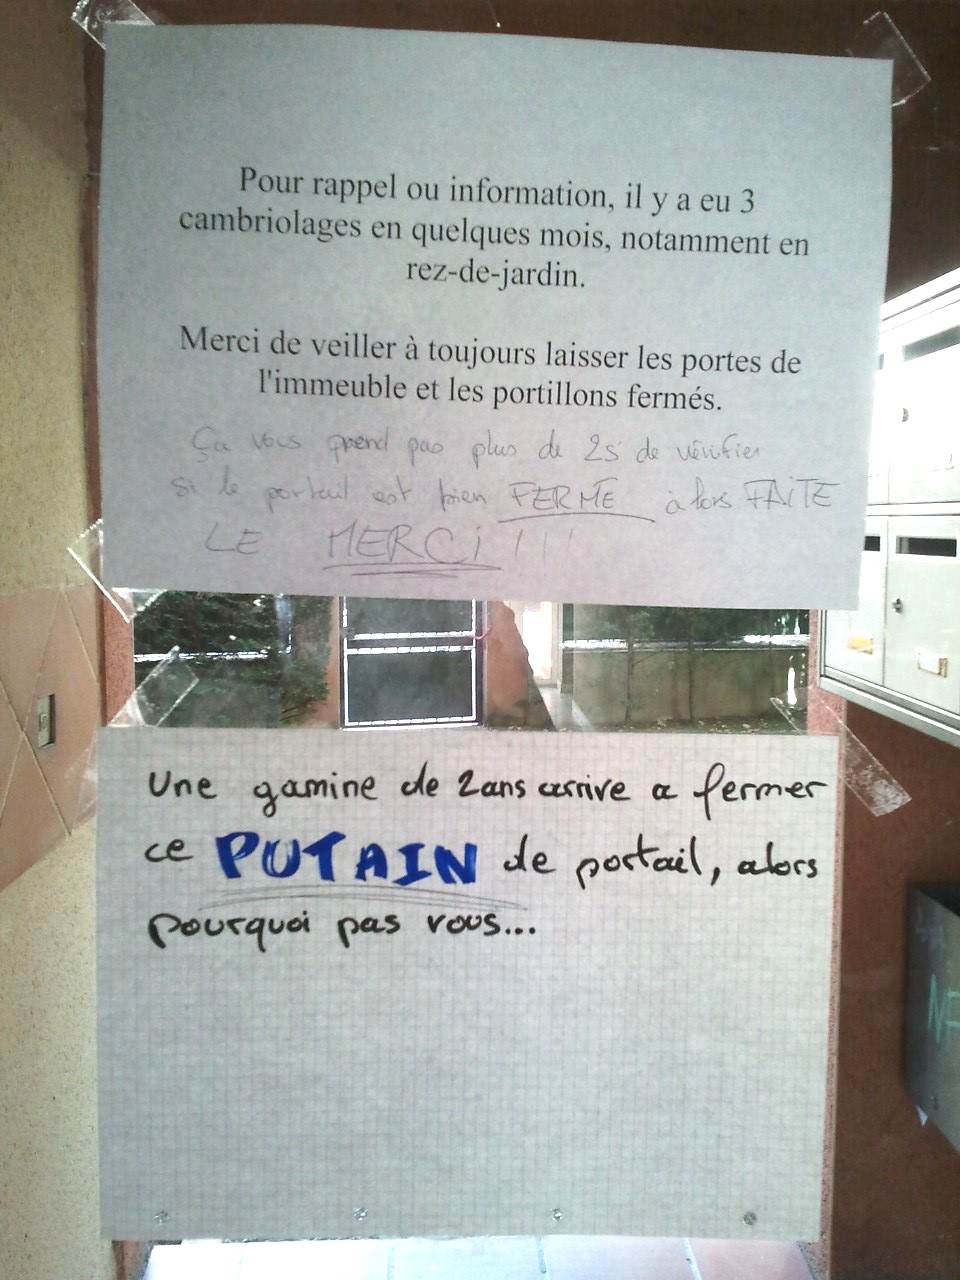 Pour rappel ou information, il y a eu 3
cambriolages en quelques mois, notamment en
rez-de-jardin.
Merci de veiller à toujours laisser les portes de
l'immeuble et les portillons fermés.
Ça vous prend pas plus de 2s de vérifier
si le portail est bien FERMÉ alors FAITE
LE MERCi !!!
Une gamine de 2ans arrive a fermer
ce PUTAIN de portail, alors
pourquoi pas vous...